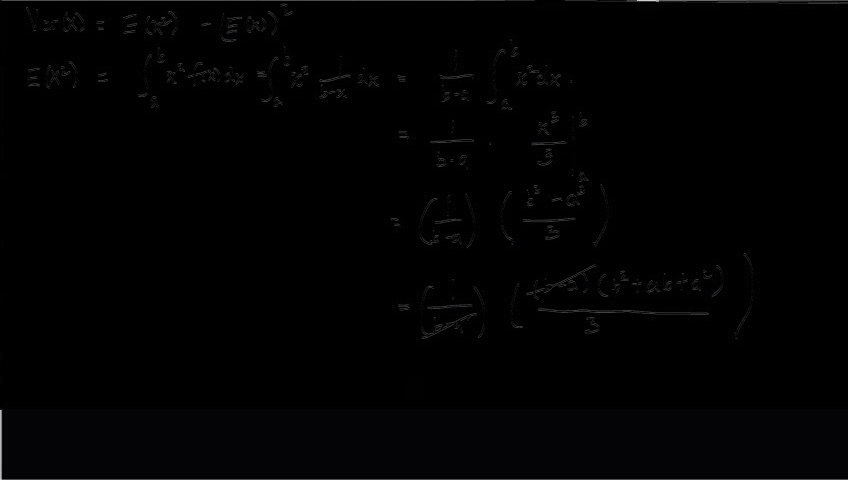 Var(x) = E(x²) - (E(x))²
E(x²) = ∫ₐᵇ x² f(x) dx = ∫ₐᵇ x² 1/(b-x) dx = 1/(b-a) ∫ₐᵇ x² dx.
= 1/(b-a) · x³/3 |ₐᵇ
= (1/(b-a)) ((b³ - a³)/3)
= (1/(b-a)) ((b-a)(b²+ab+a²)/3)